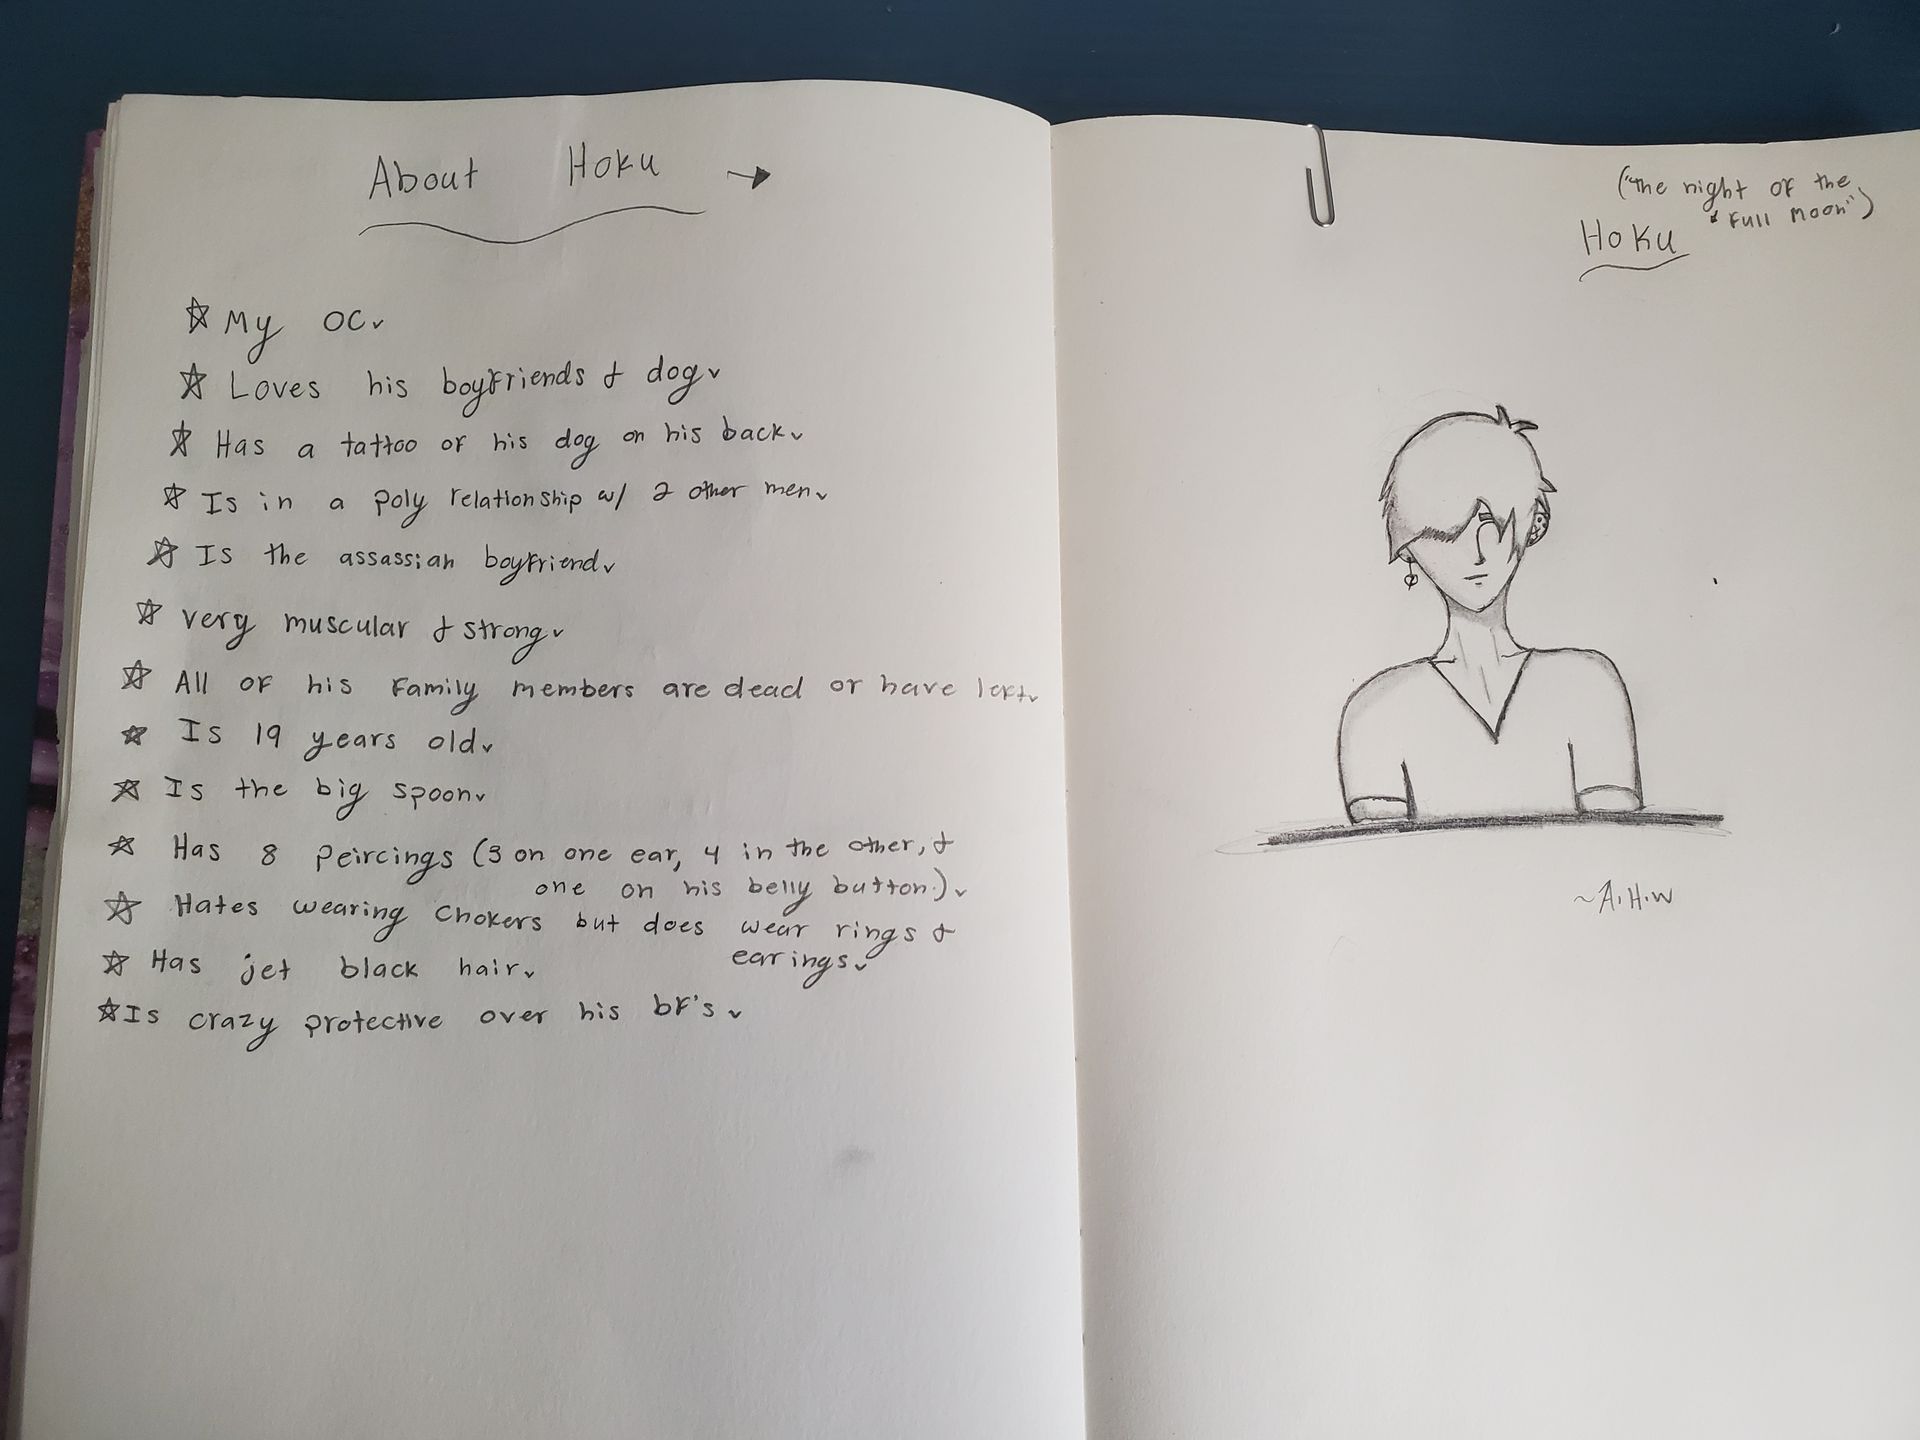 About Hoku →
☆ My OC.
☆ Loves his boyfriends & dog.
☆ Has a tattoo of his dog on his back.
☆ Is in a poly relationship w/ 2 other men.
☆ Is the assassian boyfriend.
☆ very muscular & strong.
☆ All of his family members are dead or have left.
☆ Is 19 years old.
☆ Is the big spoon.
☆ Has 8 peircings (3 on one ear, 4 in the other, &
one on his belly button.)
☆ Hates wearing chokers but does wear rings &
earings.
☆ Has jet black hair.
☆ Is crazy protective over his bf's.
("the night of the
full moon")
Hoku
~A.H.W